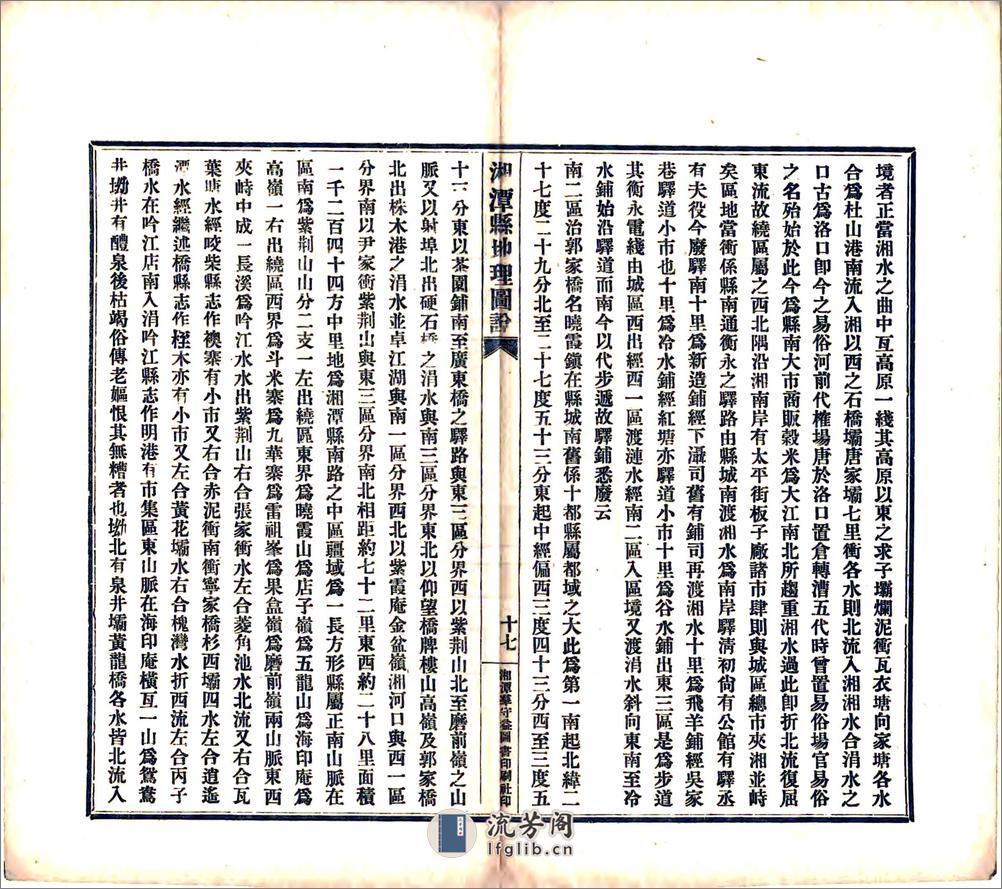 境者正當湘水之曲中互高原一綫其高原以東之求子壩爛泥衝瓦衣塘向家塘各水
合爲杜山港南流入湘以西之石橋壩唐家壩七里衝各水則北流入湘湘水合涓水之
口古爲洛口卽今之易俗河前代榷場唐於洛口置倉轉漕五代時曾置易俗場官易俗
之名殆始於此今爲縣南大市商販穀米爲大江南北所趨重湘水過此卽折北流復屈
東流故繞區屬之西北隅沿湘南岸有太平街板子廠諸市肆則與城區總市夾湘並峙
矣區地當衝係縣南通衡永之驛路由縣城南渡湘水爲南岸驛淸初尙有公館有驛丞
有夫役今廢驛南十里爲新造鋪經下灄司舊有鋪司再渡湘水十里爲飛羊鋪經吳家
巷驛道小市也十里爲冷水鋪經紅塘亦驛道小市十里爲谷水鋪出東三區是爲步道
其衡永電綫由城區西出經西一區渡漣水經南二區入區境又渡涓水斜向東南至冷
水鋪始沿驛道而南今以代步遞故驛鋪悉廢云
南二區治郭家橋名曉霞鎭在縣城南舊係十都縣屬都域之大此爲第一南起北緯二
十七度二十九分北至二十七度五十三分東起中經偏西三度四十三分西至三度五
湘潭縣地理圖說
十七
湘潭華守益圖書印刷社印
十一分東以茶園鋪南至廣東橋之驛路與東三區分界西以紫荆山北至磨前嶺之山
脈又以射埠北出硬石橋之涓水與南三區分界東北以仰望橋牌樓山高嶺及郭家橋
北出株木港之涓水並卓江湖與南一區分界西北以紫霞庵金盆嶺湘河口與西一區
分界南以尹家衝紫荆山與東三區分界南北相距約七十二里東西約二十八里面積
一千二百四十四方中里地爲湘潭縣南路之中區疆域爲一長方形縣屬正南山脈在
區南爲紫荆山山分二支一左出繞區東界爲曉霞山爲店子嶺爲五龍山爲海印庵爲
高嶺一右出繞區西界爲斗米寨爲九華寨爲雷祖峯爲果盒嶺爲磨前嶺兩山脈東西
夾峙中成一長溪爲吟江水水出紫荆山右合張家衝水左合菱角池水北流又右合瓦
葉塘水經咬柴縣志作襖寨有小市又右合赤泥衝南衝寧家橋杉西壩四水左合逍遙
潭水經繼述橋縣志作桎木亦有小市又左合黃花壩水右合槐灣水折西流左合丙子
橋水在吟江店南入涓吟江縣志作明港有市集區東山脈在海印庵橫互一山爲鴛鴦
井坳井有醴泉後枯竭俗傳老嫗恨其無糟者也坳北有泉井壩黃龍橋各水皆北流入
流芳阁
lfglib.cn